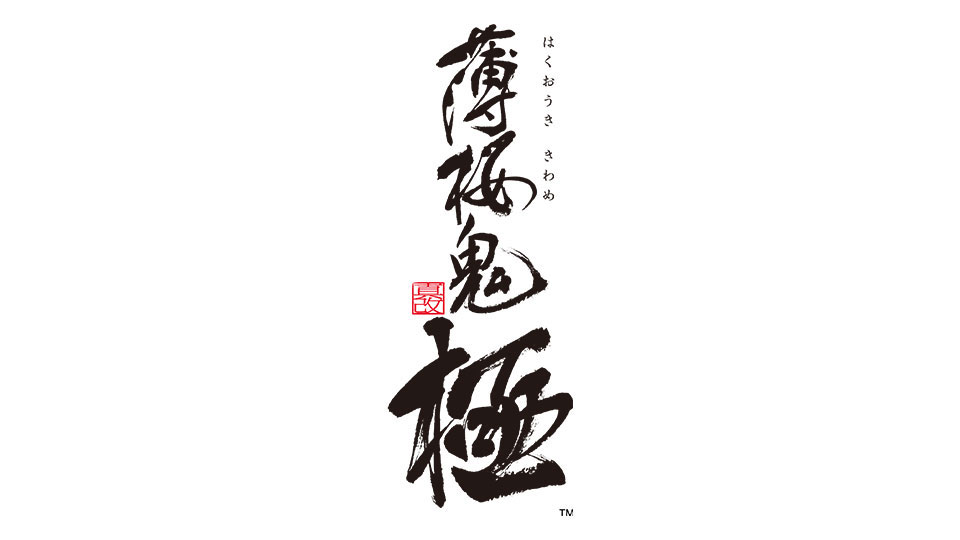 はくおうき きわめ
薄桜鬼
真改
極
TM